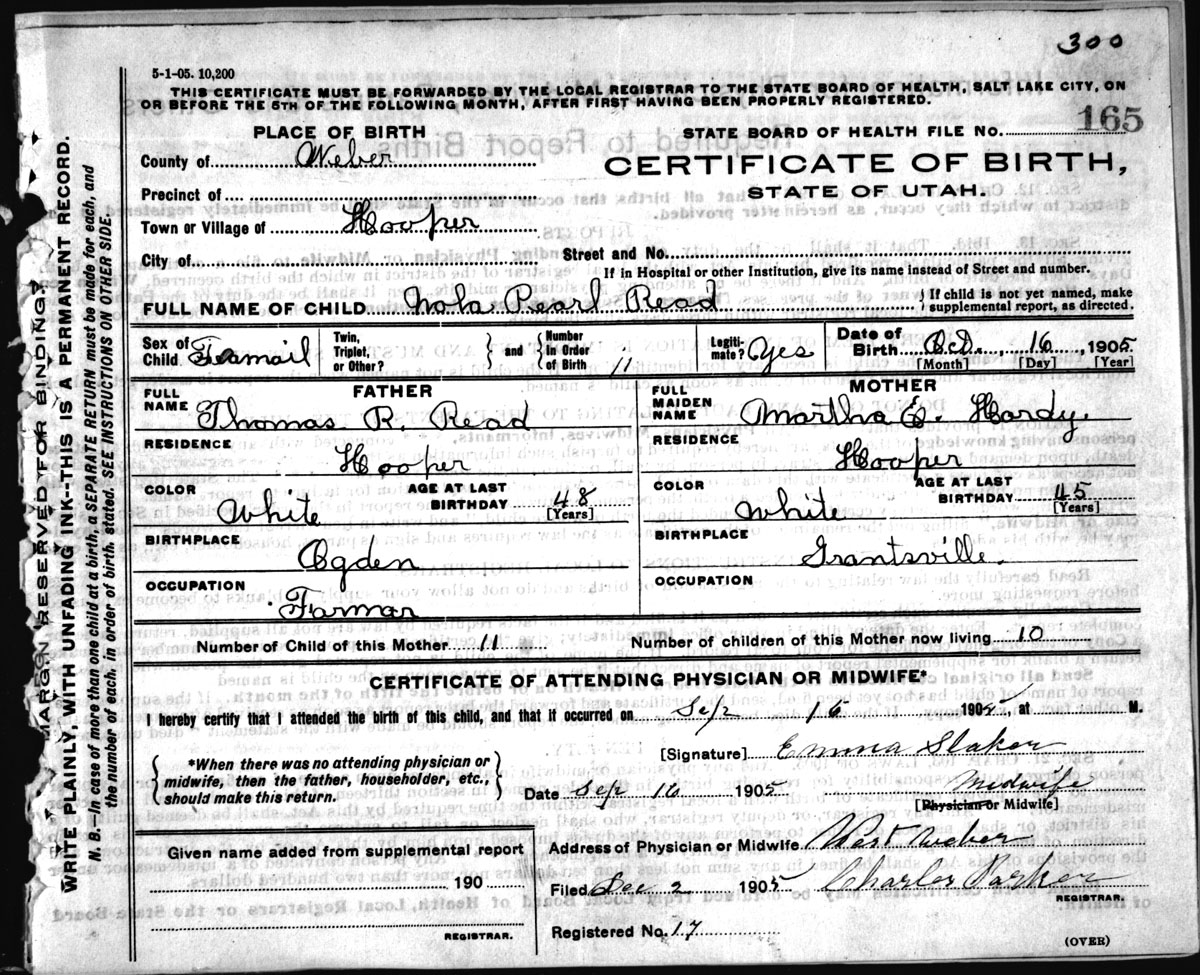 300
5-1-05. 10,200
THIS CERTIFICATE MUST BE FORWARDED BY THE LOCAL REGISTRAR TO THE STATE BOARD OF HEALTH, SALT LAKE CITY, ON
OR BEFORE THE 5TH OF THE FOLLOWING MONTH, AFTER FIRST HAVING BEEN PROPERLY REGISTERED.
165
PLACE OF BIRTH
STATE BOARD OF HEALTH FILE NO.
County of Weber
CERTIFICATE OF BIRTH,
Precinct of
STATE OF UTAH.
Town or Village of Hooper
City of Street and No.
If in Hospital or other Institution, give its name instead of Street and number.
FULL NAME OF CHILD Nola Pearl Read { If child is not yet named, make
supplemental report, as directed.
Sex of Child Feamail
Twin, Triplet, or Other? } and { Number in Order of Birth 11
Legiti- mate? Yes
Date of Birth Oct. 16 1905
[Month] [Day] [Year]
FATHER
FULL NAME Thomas R. Read
RESIDENCE
Hooper
COLOR White
AGE AT LAST BIRTHDAY 48
[Years]
BIRTHPLACE
Ogden
OCCUPATION
Farmar
MOTHER
FULL MAIDEN NAME Martha E. Hardy.
RESIDENCE
Hooper
COLOR White
AGE AT LAST BIRTHDAY 45
[Years]
BIRTHPLACE
Grantsville.
OCCUPATION
Number of Child of this Mother 11 Number of children of this Mother now living 10
CERTIFICATE OF ATTENDING PHYSICIAN OR MIDWIFE*
I hereby certify that I attended the birth of this child, and that it occurred on Sep 16 1905 at M.
*When there was no attending physician or
midwife, then the father, householder, etc.,
should make this return.
[Signature] Emma Slaker
Date Sep 16 1905 Midwife
[Physician or Midwife]
Given name added from supplemental report
190
REGISTRAR.
Address of Physician or Midwife West Weber
Filed Dec 2 1905 Charles Parker
REGISTRAR.
Registered No. 17
(OVER)
MARGIN RESERVED FOR BINDING?
WRITE PLAINLY WITH UNFADING INK--THIS IS A PERMANENT RECORD.
N. B.—In case of more than one child at a birth, a SEPARATE RETURN must be made for each, and
the number of each, in order of birth, stated. SEE INSTRUCTIONS ON OTHER SIDE.